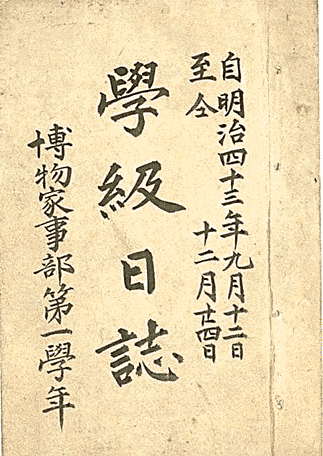 自明治四十三年九月十二日
至仝 十二月廿四日
學級日誌
博物家事部第一學年